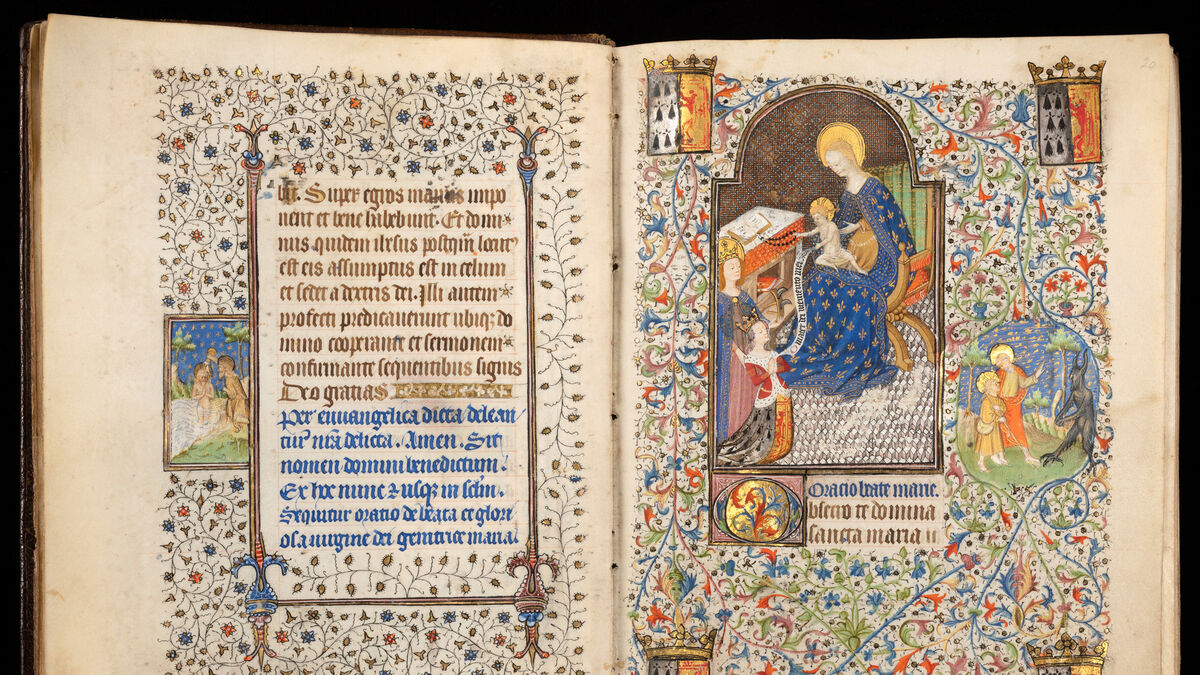 Super egros manus impo
nent et bene habebunt. Et domi
nus quidem ihesus postqm̄ locut᷒
est eis assumptus est in celum
et sedet a dextris dei. Illi autem
profecti predicaverunt ubiqꝫ do
mino cooperante et sermonem
confirmante sequentibus signis
Deo gratias
Per euuangelica dicta delean
tur nr̄a delicta. Amen. Sit
nomen domini benedictum.
Ex hoc nunc et usqꝫ in sclm̄.
Sequitur oratio de beata et glori
osa uirgine dei genitrice maria.
20
mater dei memento mei
Oratio beate marie.
Obsecro te domina
sancta maria